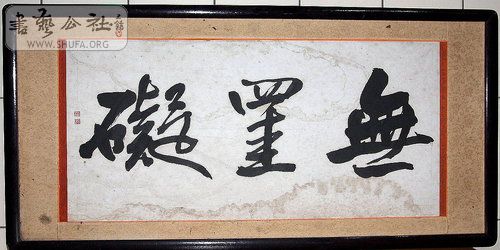 無罣礙
書藝公社
www.SHUFA.ORG